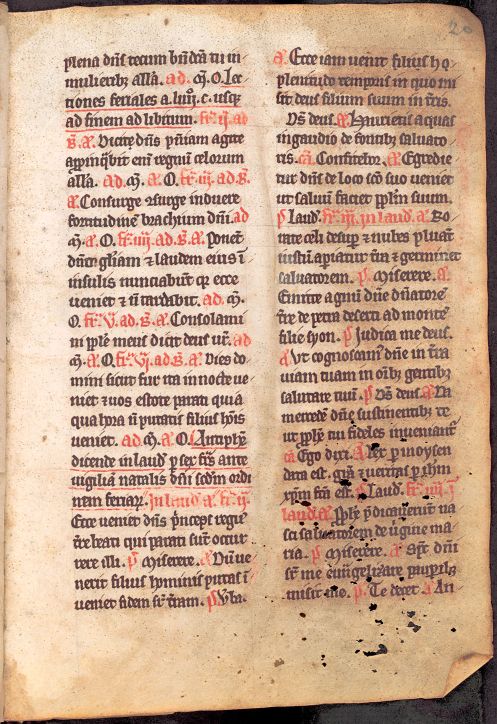 20
plena dn̄s tecum bn̄dc̄ta tu in
mulieribꝫ all̄a. ad. m̄. O. Lec
tiones feriales a. c. usqꝫ
ad finem ad libitum. fr̄. ij. ad
b̄. a. Dicite dn̄s pn̄iam agite
appinqͥbit eni regnū celorum
all̄a. ad. m̄. a. O. fr̄. iij. ad. b̄.
a. Consurge 9surge induere
fortitudinē brachium dn̄i. ad
m̄. a. O. fr̄. iiij. ad. b̄. a. ponēt
dn̄o gl̄iam ⁊ laudem eius ī
insulis nunciabūt qꝛ ecce
ueniet ⁊ n̄ tardabit. ad. m̄.
O. fr̄. V. ad. b̄. a. Consolami
ni ple meus dicit deus ur̄. ad
m̄. a. O. fr̄. Vj. ad. b̄. a. Dies do
mini sicut fur ita in nocte ue
niet ⁊ uos estote parati quia
qua hora n̄ putatis filius hoīs
ueniet. ad. m̄. a. O. Antiphe
dicende in laud p sex frs ante
vigiliā natalis dn̄i scd̄m ordi
nem feriarꝝ. In laud. a. fr̄. ij.
Ecce ueniet dn̄s prīceps regū
t̄re beati qui parati sūt occur
rere illi. p̄ Miserere. a. Dū ue
nerit filius hominis putas ī
ueniet fidem sr̄ t̄ram. p̄ Vba.
a. Ecce iam uenit filius ho
plenitudo temporis in quo mi
sit deus filium suum in t̄ris.
Ds̄ deus. a. Haurietis aquas
in gaudio de fontibꝫ saluato
ris. Confitebor. a. Egredie
tur dn̄s de loco sc̄o suo ueniet
ut saluū faciet pplm̄ suum.
p̄ laud. fr̄. iij. in laud. a. Ro
rate celi desuꝑ ⁊ nubes pluāt
iustū apiatur t̄ra ⁊ germinet
saluatorem. p̄ Miserere. a.
Emitte agnū dn̄e dn̄atorē
t̄re de petra deserti ad montē
filie syon. p̄ Iudica me deus.
a Vt cognoscam dn̄e in t̄ra
uiam tuam in oībꝫ gentibꝫ
salutare tuū. p̄ Ds̄ deus. a. Da
mercedē dn̄e sustinentibꝫ te
ut pphe tui fideles inueniant̄
Ego dixi. a. lex p moysen
data est. gr̄a ⁊ ueritas p ihm̄
xp̄m f̄cā est. p̄ Laud. fr̄. iiij. ī
laud. a. pphe p̄dicauerūt na
sci saluatorem de ūgine ma
ria. p̄ Miserere. a. Sp̄c dn̄i
sr̄ me euāgelizare pauꝑibꝫ
misit me. p̄. Te decet. a An